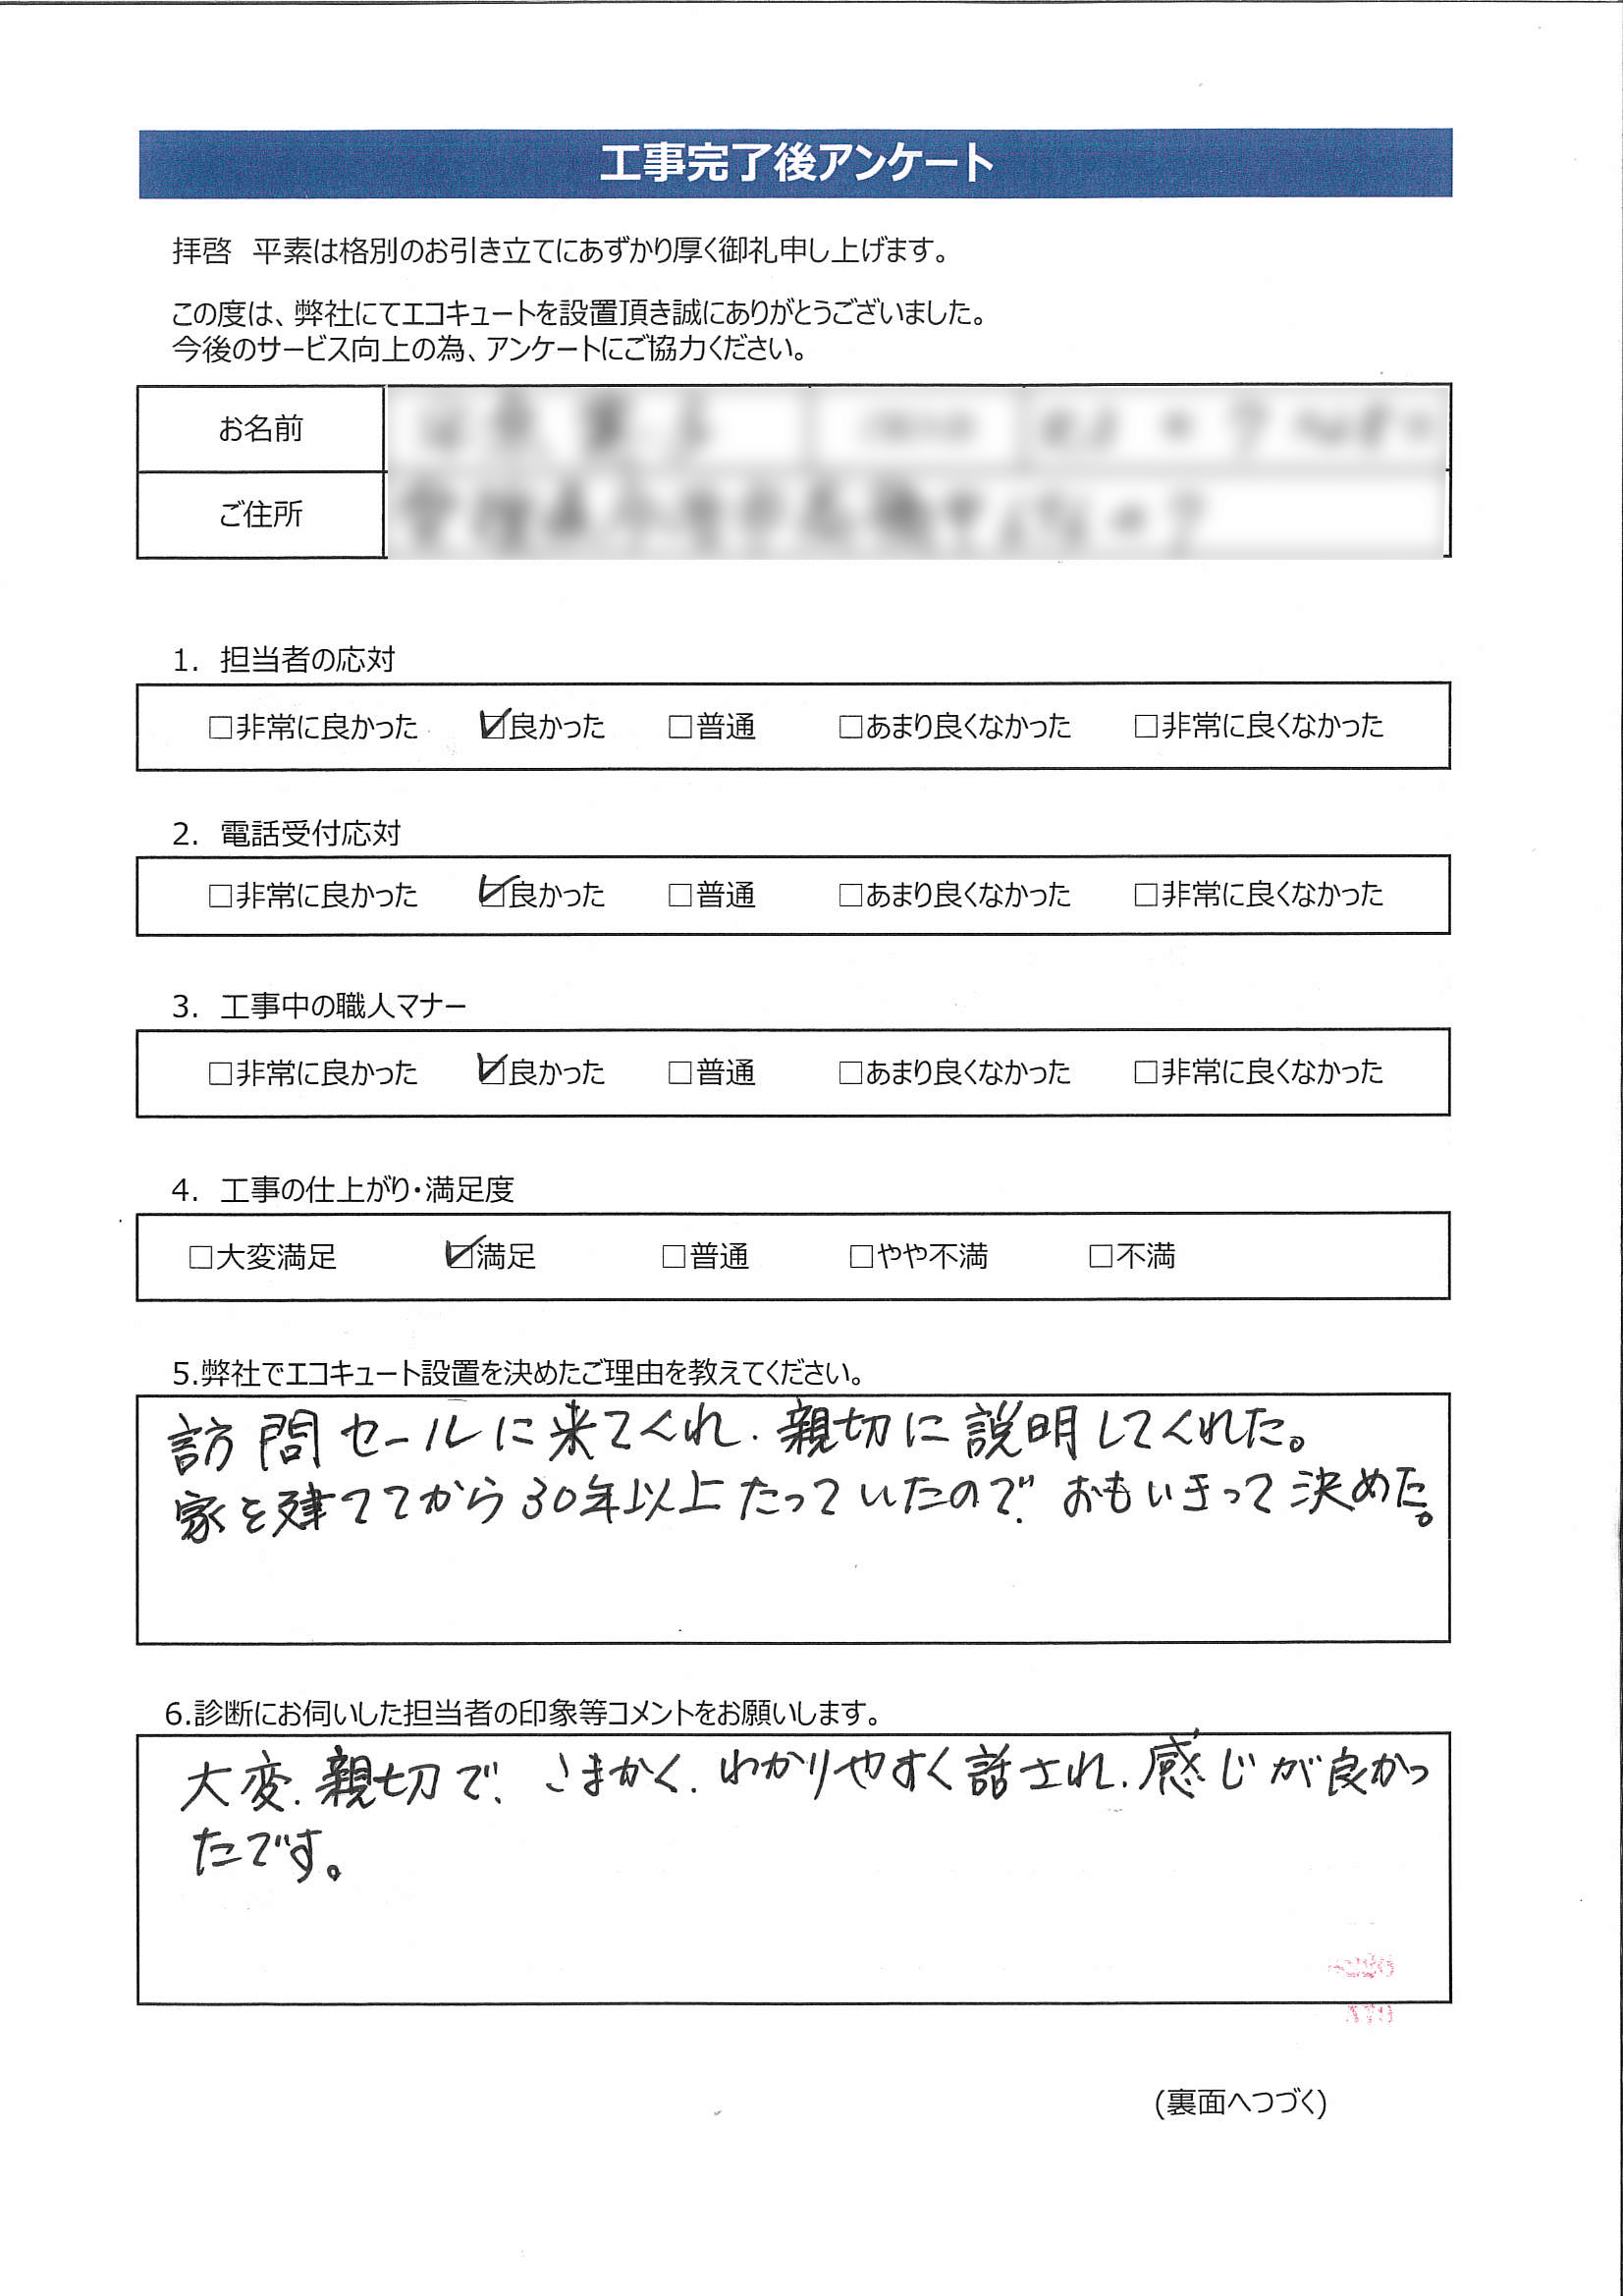 工事完了後アンケート
拝啓　平素は格別のお引き立てにあずかり厚く御礼申し上げます。
この度は、弊社にてエコキュートを設置頂き誠にありがとうございました。
今後のサービス向上の為、アンケートにご協力ください。
お名前
ご住所
1.　担当者の応対
□非常に良かった　☑良かった　□普通　□あまり良くなかった　□非常に良くなかった
2.　電話受付応対
□非常に良かった　☑良かった　□普通　□あまり良くなかった　□非常に良くなかった
3.　工事中の職人マナー
□非常に良かった　☑良かった　□普通　□あまり良くなかった　□非常に良くなかった
4.　工事の仕上がり・満足度
□大変満足　☑満足　□普通　□やや不満　□不満
5.弊社でエコキュート設置を決めたご理由を教えてください。
訪問セールに来てくれ、親切に説明してくれた。
家を建ててから30年以上たっていたので、おもいきって決めた。
6.診断にお伺いした担当者の印象等コメントをお願いします。
大変、親切で、こまかく、わかりやすく話され、感じが良かっ
たです。
(裏面へつづく)